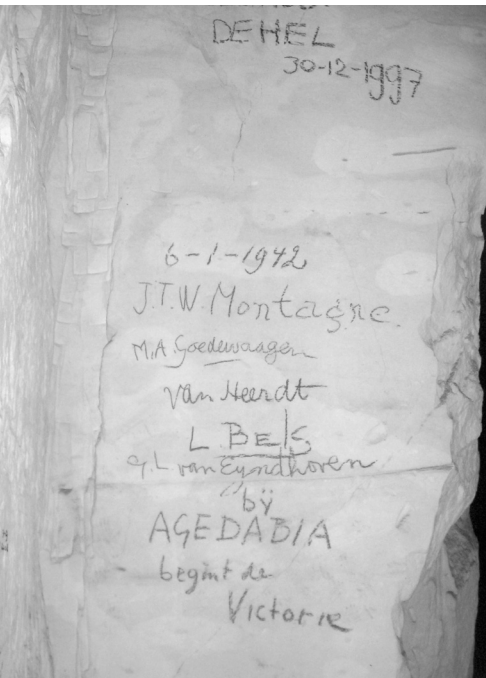 DE HEL
30-12-1997
6-1-1942
J.T.W. Montagne.
M.A. Goedewaagen
van Heerdt
L. BELS
G.L van Eyndhoven
bÿ
AGEDABIA
begint de
Victorie